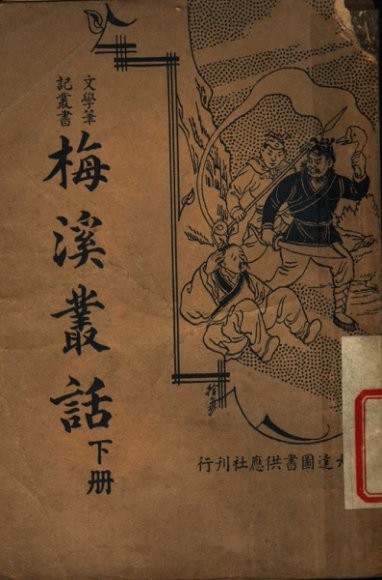 文學筆
記叢書
梅溪叢話
下册
大達圖書供應社刊行